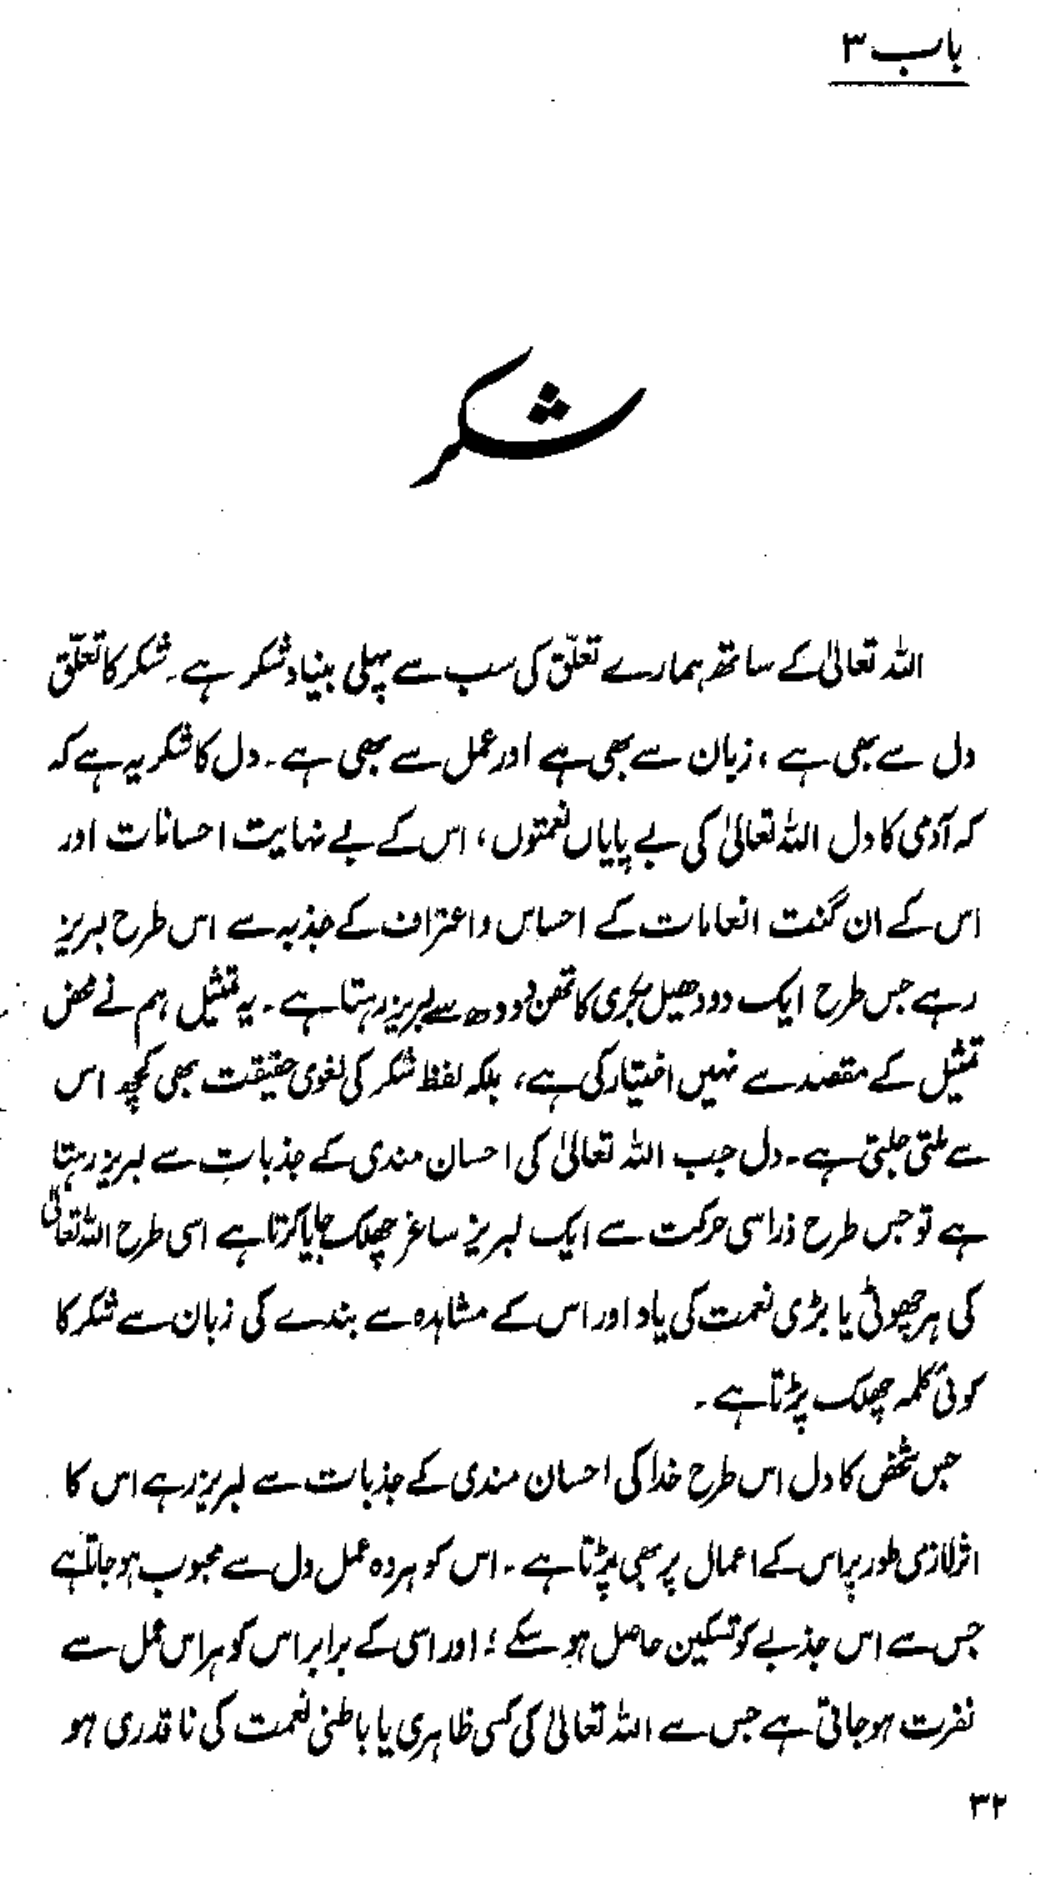 باب ۳
شکر
اللہ تعالیٰ کے ساتھ ہمارے تعلّق کی سب سے پہلی بنیاد شکر ہے۔ شکر کا تعلّق
دل سے بھی ہے، زبان سے بھی ہے اور عمل سے بھی ہے۔ دل کا شکر یہ ہے کہ
کہ آدمی کا دل اللہ تعالیٰ کی بے پایاں نعمتوں، اس کے بے نہایت احسانات اور
اس کے ان گنت انعامات کے احساس و اعتراف کے جذبہ سے اس طرح لبریز
رہے جس طرح ایک دودھیل بکری کا تھن دودھ سے لبریز رہتا ہے۔ یہ تمثیل ہم نے محض
تمثیل کے مقصد سے نہیں اختیار کی ہے، بلکہ لفظ شکر کی لغوی حقیقت بھی کچھ اس
سے ملتی جلتی ہے۔ دل جب اللہ تعالیٰ کی احسان مندی کے جذبات سے لبریز رہتا
ہے تو جس طرح ذرا سی حرکت سے ایک لبریز ساغر چھلک جایا کرتا ہے اسی طرح اللہ تعالیٰ
کی ہر چھوٹی یا بڑی نعمت کی یاد اور اس کے مشاہدہ سے بندے کی زبان سے شکر کا
کوئی کلمہ چھلک پڑتا ہے۔
جس شخص کا دل اس طرح خدا کی احسان مندی کے جذبات سے لبریز رہے اس کا
اثر لازمی طور پر اس کے اعمال پر بھی پڑتا ہے۔ اس کو ہر وہ عمل دل سے محبوب ہو جاتا ہے
جس سے اس جذبے کو تسکین حاصل ہو سکے؛ اور اسی کے برابر اس کو ہر اس عمل سے
نفرت ہو جاتی ہے جس سے اللہ تعالیٰ کی کسی ظاہری یا باطنی نعمت کی ناقدری ہو
۳۲